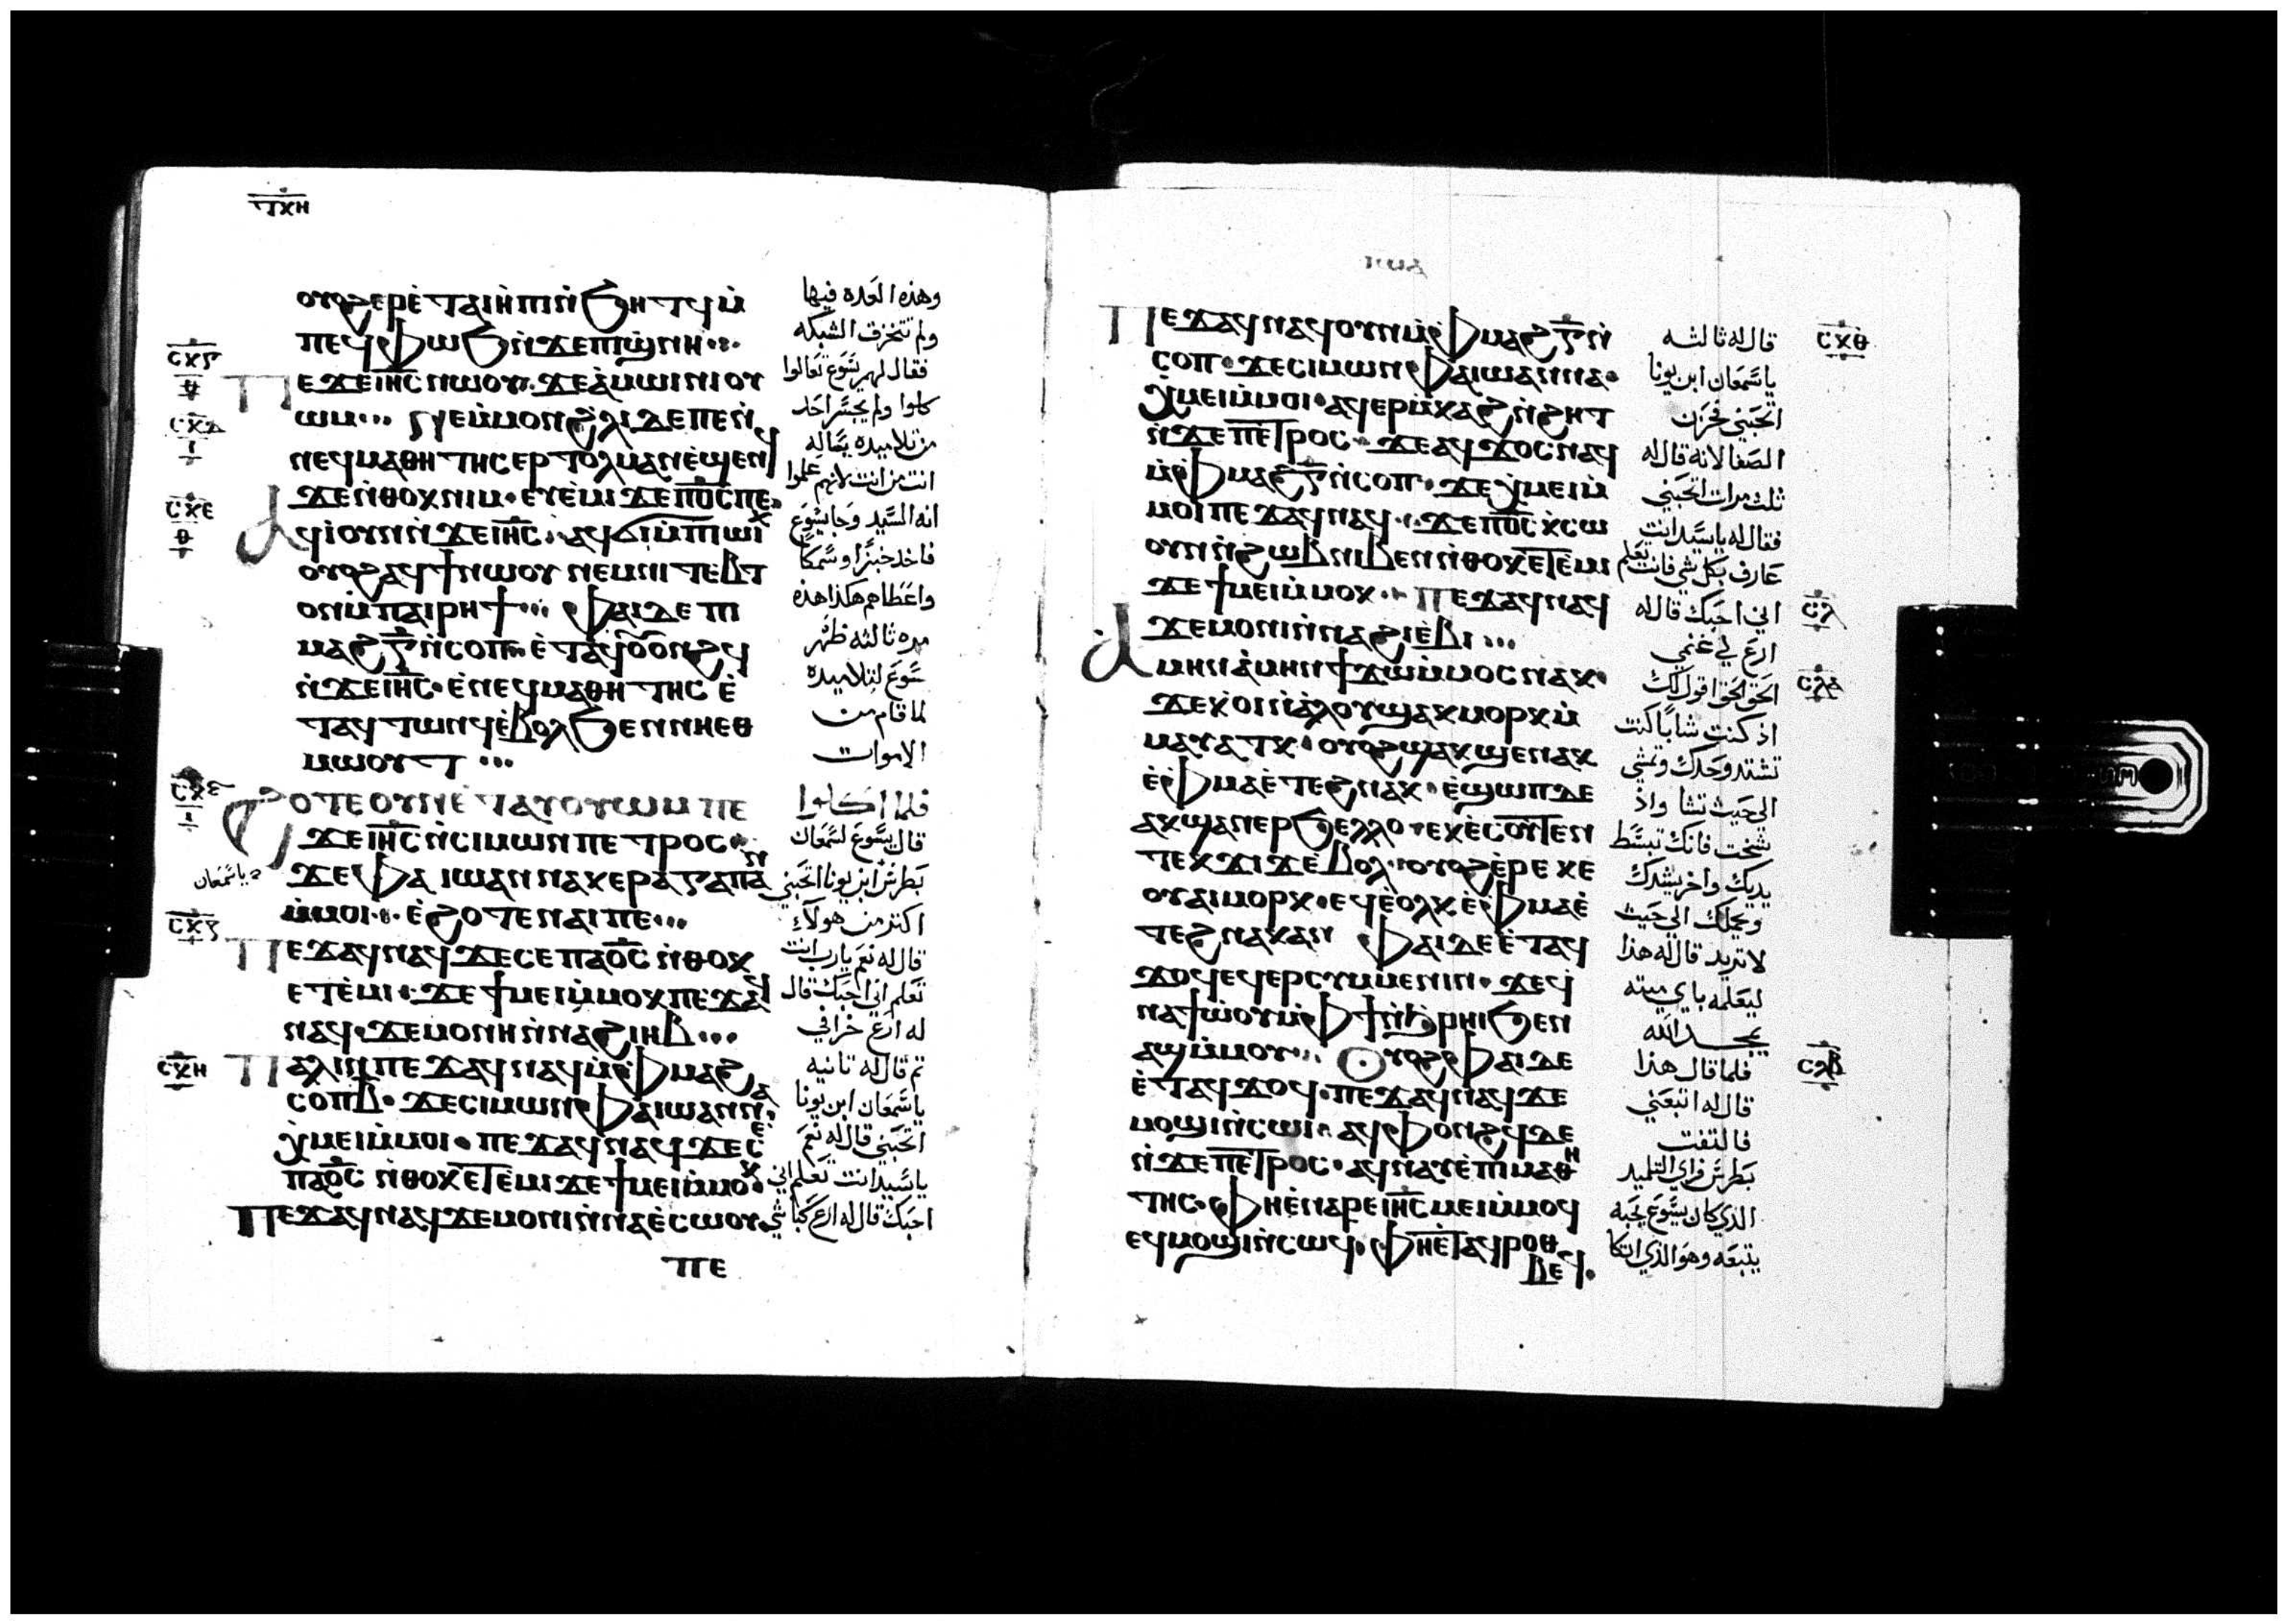 ⲧⲕⲏ
ⲟⲩⲟϩ ⲉⲣⲉ̀ ⲧⲁⲓⲏ̀ⲡⲓ ⲛ̀ϧⲏⲧϥ ⲙ̀
ⲡⲉϥⲫⲱϧ ⲛ̀ϫⲉ ⲡⲓϣ̀ⲛⲏ
ⲡⲉϫⲉ ⲓⲏ̅ⲥ̅ ⲛⲱⲟⲩ ϫⲉ ⲁ̀ⲙⲱⲓⲛⲓ ⲟⲩ
ⲱⲙ ⲙ̀ⲙⲟⲛ ϩ̀ⲗⲓ ⲇⲉ ⲡⲉ ⲛ̀
ⲛⲉϥⲙⲁⲑⲏⲧⲏⲥ ⲉⲣⲧⲟⲗⲙⲁⲛ ⲉ̀ϣⲉⲛϥ
ϫⲉ ⲛ̀ⲑⲟⲕ ⲛⲓⲙ ⲉⲩⲉ̀ⲙⲓ ϫⲉ ⲡⲟ̅ⲥ̅ ⲡⲉ
ⲁϥⲓ̀ ⲟⲩⲛ ⲛ̀ϫⲉ ⲓⲏ̅ⲥ̅ ⲁϥϭⲓ ⲙ̀ⲡⲓⲱⲓⲕ
ⲟⲩⲟϩ ⲁϥϯ ⲛⲱⲟⲩ ⲛⲉⲙ ⲡⲓⲧⲉⲃⲧ
ⲟⲛ ⲙ̀ⲡⲁⲓⲣⲏϯ ⲫⲁⲓ ⲇⲉ ⲡ
ⲙⲁϩ ⲅ̅ ⲛ̀ⲥⲟⲡ ⲉ̀ⲧⲁϥⲟⲩⲟⲛϩϥ
ⲛ̀ϫⲉ ⲓⲏ̅ⲥ̅ ⲉ̀ⲛⲉϥⲙⲁⲑⲏⲧⲏⲥ ⲉ̀
ⲧⲁϥⲧⲱⲛϥ ⲉ̀ⲃⲟⲗ ϧⲉⲛ ⲛⲏⲉⲑ
ⲙⲱⲟⲩⲧ
ϩⲟⲧⲉ ⲟⲩⲛ ⲉ̀ⲧⲁⲩⲟⲩⲱⲙ ⲡⲉ
ϫⲉ ⲓⲏ̅ⲥ̅ ⲛ̀ⲥⲓⲙⲱⲛ ⲡⲉⲧⲣⲟⲥ
ϫⲉ ⲫⲁ ⲓⲱⲁⲛⲛⲁ ⲕⲉⲣⲁⲅⲁⲡⲁⲛ
ⲙ̀ⲙⲟⲓ ⲉ̀ϩⲟⲧⲉ ⲛⲁⲓ ⲡⲉ
ⲡⲉϫⲁϥ ⲛⲁϥ ϫⲉ ⲥⲉ ⲡⲁⲟ̅ⲥ̅ ⲛ̀ⲑⲟⲕ
ⲉⲧⲉ̀ⲙⲓ ϫⲉ ϯⲙⲉⲓ ⲙ̀ⲙⲟⲕ ⲡⲉϫⲁϥ
ⲛⲁϥ ϫⲉ ⲙⲟⲛⲏ ⲛ̀ⲛⲁϩⲓⲏⲃ
ⲡⲁⲗⲓⲛ ⲡⲉϫⲁϥ ⲛⲁϥ ⲙ̀ⲫⲙⲁϩ
ⲥⲟⲡ ⲃ̅ ϫⲉ ⲥⲓⲙⲱⲛ ⲫⲁ ⲓⲱⲁⲛⲛⲁ
ⲭ̀ⲙⲉⲓ ⲙ̀ⲙⲟⲓ ⲡⲉϫⲁϥ ⲛⲁϥ ϫⲉ ⲥⲉ
ⲡⲁⲟ̅ⲥ̅ ⲛ̀ⲑⲟⲕ ⲉⲧⲉ̀ⲙⲓ ϫⲉ ϯⲙⲉⲓ ⲙ̀ⲙⲟⲕ
ⲡⲉϫⲁϥ ⲛⲁϥ ϫⲉ ⲙⲟⲛⲓ ⲛ̀ⲛⲁⲉ̀ⲥⲱⲟⲩ
ⲡⲉ
وهذه العده فيها
ولم تتخرق الشبكه
فقال لهم يسوع تعالوا
كلوا ولم يجسر احد
من تلاميده يساله
انت من انت لانهم علموا
انه السيد وجا يسوع
فاخد خبزا وسمكا
واعطاهم هكذا هذه
مره ثالثه ظهر
يسوع لتلاميده
لما قام من
الاموات
فلما اكلوا
قال يسوع لسمعان
بطرس ابن يونا اتحبني
ياسمعان
اكتر من هولآء
قال له نعم يارب انت
تعلم اني احبك قال
له ارع خرافي
تم قال له تانيه
ياسمعان ابن يونا
اتحبني قال له نعم
ياسيد انت تعلم اني
احبك قال له ارع كباشي
ⲡⲉϫⲁϥ ⲛⲁϥ ⲟⲩⲛ ⲙ̀ⲫⲙⲁϩ ⲅ̅ ⲛ̀
ⲥⲟⲡ ϫⲉ ⲥⲓⲙⲱⲛ ⲫⲁ ⲓⲱⲁⲛⲛⲁ
ⲭ̀ⲙⲉⲓ ⲙ̀ⲙⲟⲓ ⲁϥⲉⲣⲙ̀ⲕⲁϩ ⲛ̀ϩⲏⲧ
ⲛ̀ϫⲉ ⲡⲉⲧⲣⲟⲥ ϫⲉ ⲁϥϫⲟⲥ ⲛⲁϥ
ⲙ̀ⲫⲙⲁϩ ⲅ̅ ⲛ̀ⲥⲟⲡ ϫⲉ ⲭ̀ⲙⲉⲓ ⲙ̀
ⲙⲟⲓ ⲡⲉϫⲁϥ ⲛⲁϥ ϫⲉ ⲡⲟ̅ⲥ̅ ⲕ̀ⲥⲱ
ⲟⲩⲛ ⲛ̀ϩⲱⲃ ⲛⲓⲃⲉⲛ ⲛ̀ⲑⲟⲕ ⲉⲧⲉ̀ⲙⲓ
ϫⲉ ϯⲙⲉⲓ ⲙ̀ⲙⲟⲕ ⲡⲉϫⲁϥ ⲛⲁϥ
ϫⲉ ⲙⲟⲛⲓ ⲛ̀ⲛⲁϩⲓⲉ̀ⲃⲓ
ⲁⲙⲏⲛ ⲁ̀ⲙⲏⲛ ϯϫⲱ ⲙ̀ⲙⲟⲥ ⲛⲁⲕ
ϫⲉ ⲕ̀ⲟⲓ ⲛ̀ⲁ̀ⲗⲟⲩ ϣⲁⲕⲙⲟⲣⲕ ⲙ̀
ⲙⲁⲩⲁⲧⲕ ⲟⲩⲟϩ ϣⲁⲕϣⲉ ⲛⲁⲕ
ⲉ̀ⲫⲙⲁ ⲉ̀ⲧⲉϩⲛⲁⲕ ⲉ̀ϣⲱⲡ ⲇⲉ
ⲁⲕϣⲁⲛⲉⲣϧⲉⲗⲗⲟ ⲉⲕⲉ̀ⲥⲟⲩⲧⲉⲛ
ⲧⲉⲕϫⲓϫ ⲉ̀ⲃⲟⲗ ⲟⲩⲟϩ ⲉ̀ⲣⲉ ⲕⲉ
ⲟⲩⲁⲓ ⲙⲟⲣⲕ ⲉϥⲉ̀ⲟⲗⲕ ⲉ̀ⲫⲙⲁ ⲉ̀
ⲧⲉϩⲛⲁⲕ ⲁⲛ ⲫⲁⲓ ⲇⲉ ⲉ̀ⲧⲁϥ
ϫⲟϥ ⲉϥⲉⲣⲥⲩⲙⲙⲉⲛⲓⲛ ϫⲉ ϥ
ⲛⲁϯⲱ̀ⲟⲩ ⲙ̀ⲫϯ ⲛ̀ϩ̀ⲣⲏⲓ ϧⲉⲛ
ⲁϣ ⲙ̀ⲙⲟⲩ ⲟⲩⲟϩ ⲫⲁⲓ ⲇⲉ
ⲉ̀ⲧⲁϥϫⲟϥ ⲡⲉϫⲁϥ ⲛⲁϥ ϫⲉ
ⲙⲟϣⲓ ⲛ̀ⲥⲱⲓ ⲁϥⲫⲟⲛϩϥ ⲇⲉ
ⲛ̀ϫⲉ ⲡⲉⲧⲣⲟⲥ ⲁϥⲛⲁⲩ ⲉ̀ⲡⲓⲙⲁⲑⲏ
ⲧⲏⲥ ⲫⲏ ⲉ̀ⲛⲁⲣⲉ ⲓⲏ̅ⲥ̅ ⲙⲉⲓ ⲙ̀ⲙⲟϥ
ⲉϥⲙⲟϣⲓ ⲛ̀ⲥⲱϥ ⲫⲏ ⲉ̀ⲧⲁϥⲣⲟⲑ
ⲃⲉϥ
قال له ثالثه
ياسمعان ابن يونا
اتحبني فحزن
الصفا لانه قال له
ثلث مرات اتحبني
فقال له ياسيد انت
عارف بكل شي فانت تعلم
اني احبك قال له
ارع لي غنمي
الحق الحق اقول لك
اذ كنت شابا كنت
تشتد وحدك وتمشي
الى حيث تشا واذ
شخت فانك تبسط
يديك واخر يشدك
ويحملك الى حيث
لا تريد قال له هذا
ليعلمه باي ميته
يمجد الله
فلما قال هذا
قال له اتبعني
فالتفت
بطرس فراى التلميد
الذي كان يسوع يحبه
يتبعه وهو الذي اتكا